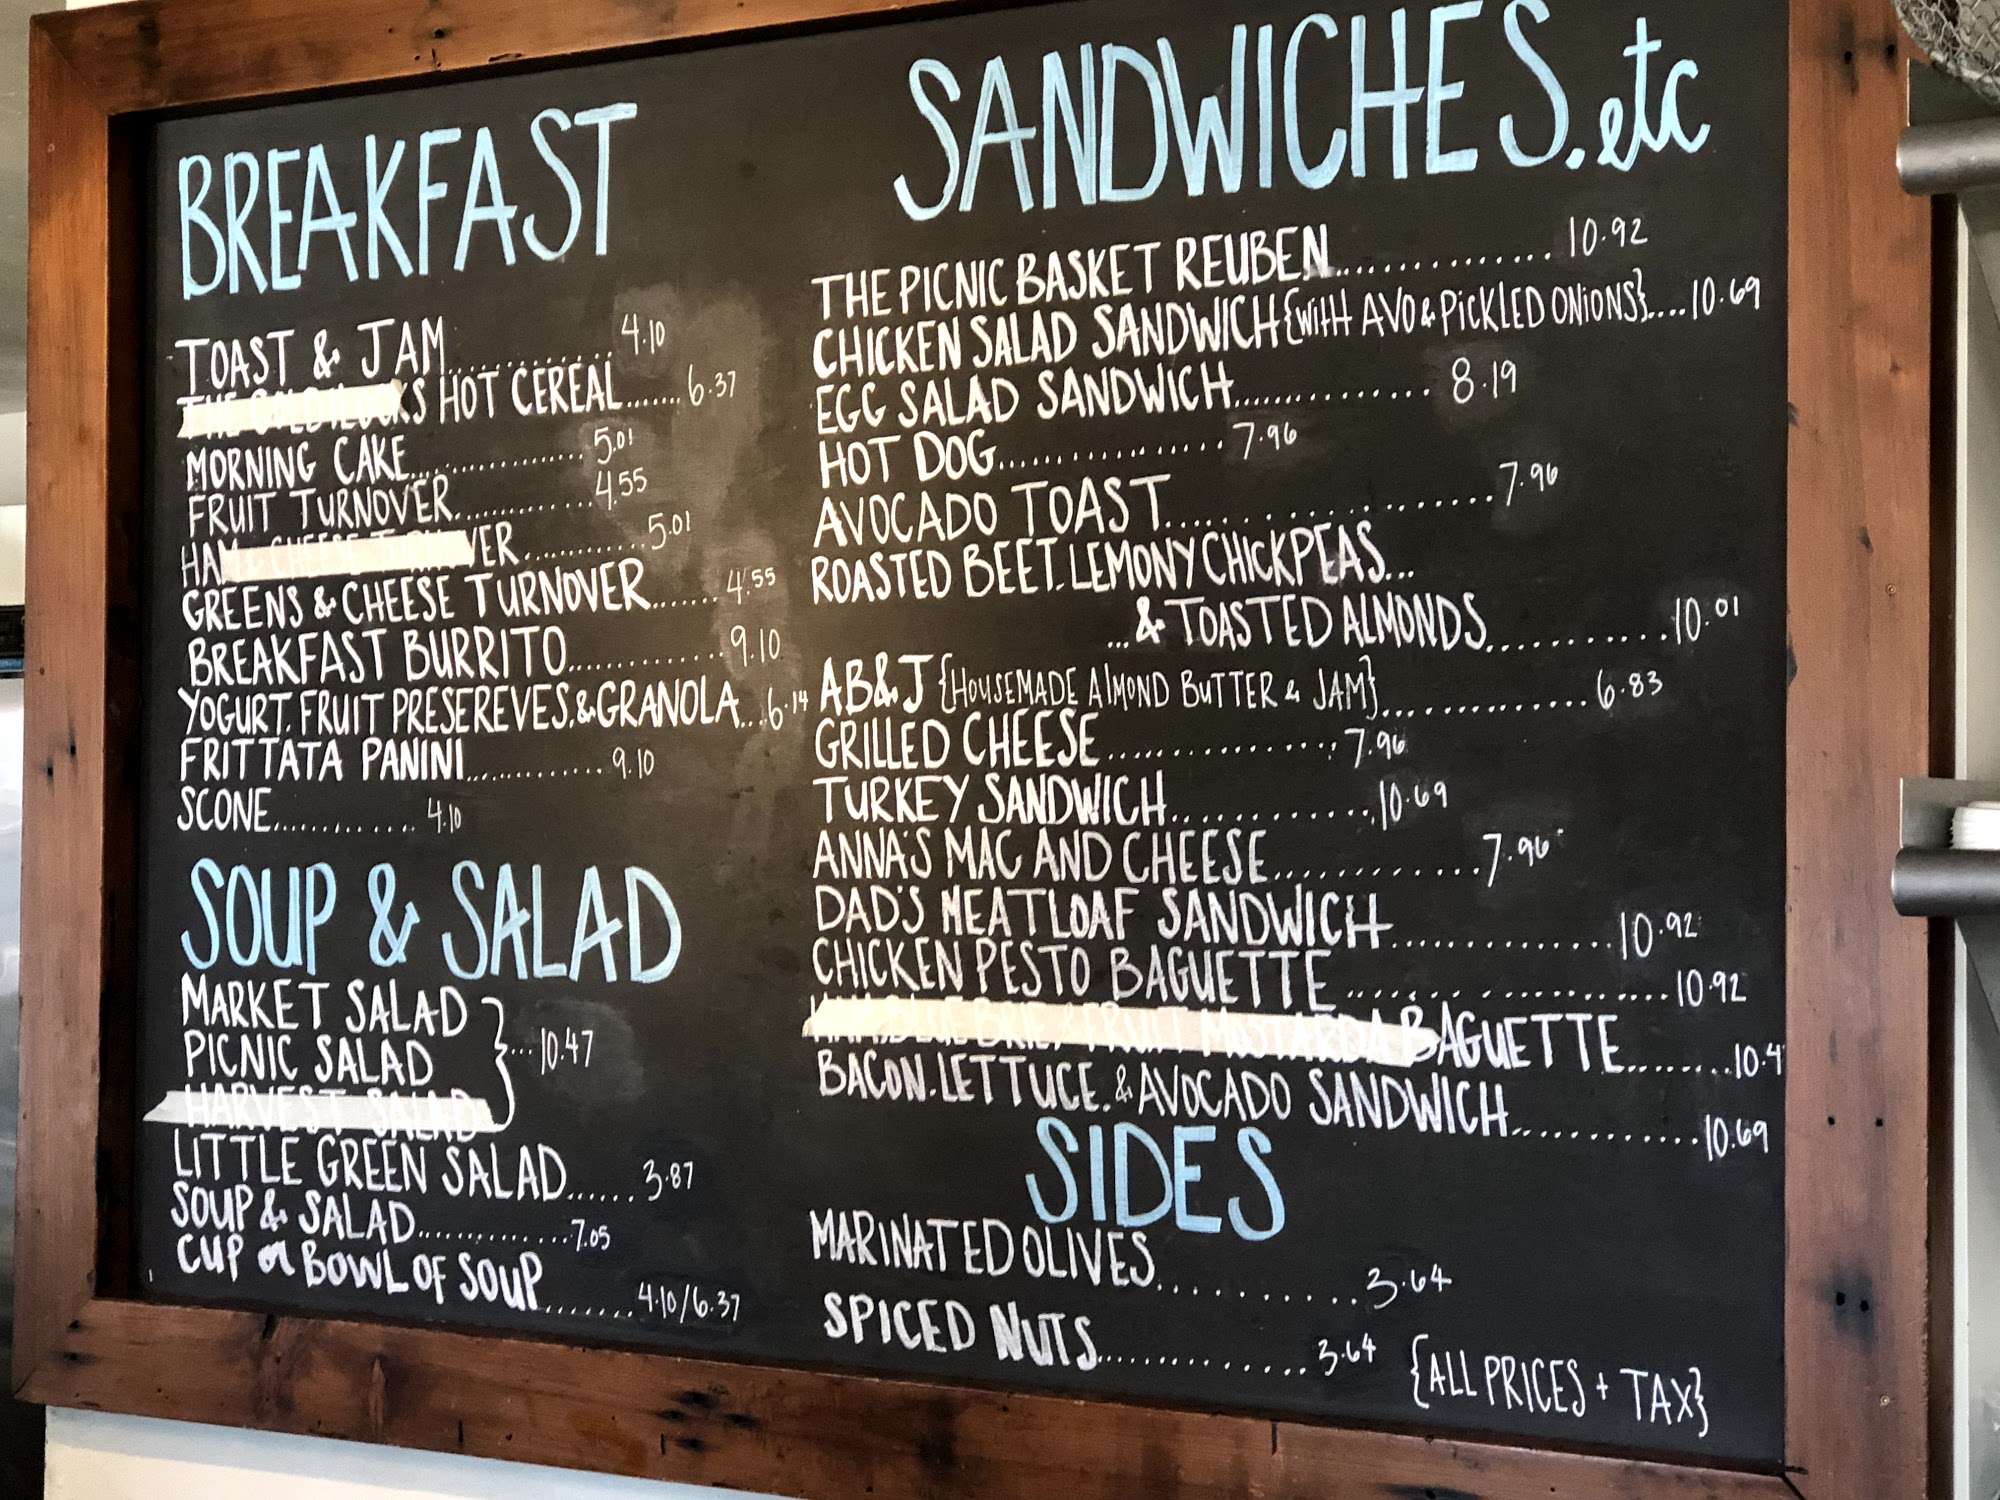 BREAKFAST
TOAST & JAM.............. 4.10
THE GOLDILOCKS HOT CEREAL....... 6.37
MORNING CAKE................ 5.01
FRUIT TURNOVER............. 4.55
HAM & CHEESE TURNOVER............. 5.01
GREENS & CHEESE TURNOVER....... 4.55
BREAKFAST BURRITO............. 9.10
YOGURT, FRUIT PRESEREVES, & GRANOLA...6.14
FRITTATA PANINI............. 9.10
SCONE............. 4.10
SOUP & SALAD
MARKET SALAD
PICNIC SALAD ...10.47
HARVEST SALAD
LITTLE GREEN SALAD...... 3.87
SOUP & SALAD.............7.05
CUP or BOWL OF SOUP.......4.10/6.37
SANDWICHES, etc
THE PICNIC BASKET REUBEN.............. 10.92
CHICKEN SALAD SANDWICH {WITH AVO & PICKLED ONIONS}....10.69
EGG SALAD SANDWICH.............. 8.19
HOT DOG............... 7.96
AVOCADO TOAST.................. 7.96
ROASTED BEET, LEMONY CHICKPEAS...
...& TOASTED ALMONDS...........10.01
AB&J {HOUSEMADE ALMOND BUTTER & JAM}.............. 6.83
GRILLED CHEESE............... 7.96
TURKEY SANDWICH.............10.69
ANNA'S MAC AND CHEESE.............7.96
DAD'S MEATLOAF SANDWICH.............10.92
CHICKEN PESTO BAGUETTE.................10.92
BRIE, & FRUIT MOSTARDA BAGUETTE........10.4
BACON, LETTUCE, & AVOCADO SANDWICH............10.69
SIDES
MARINATED OLIVES...........3.64
SPICED NUTS.............3.64
{ALL PRICES + TAX}